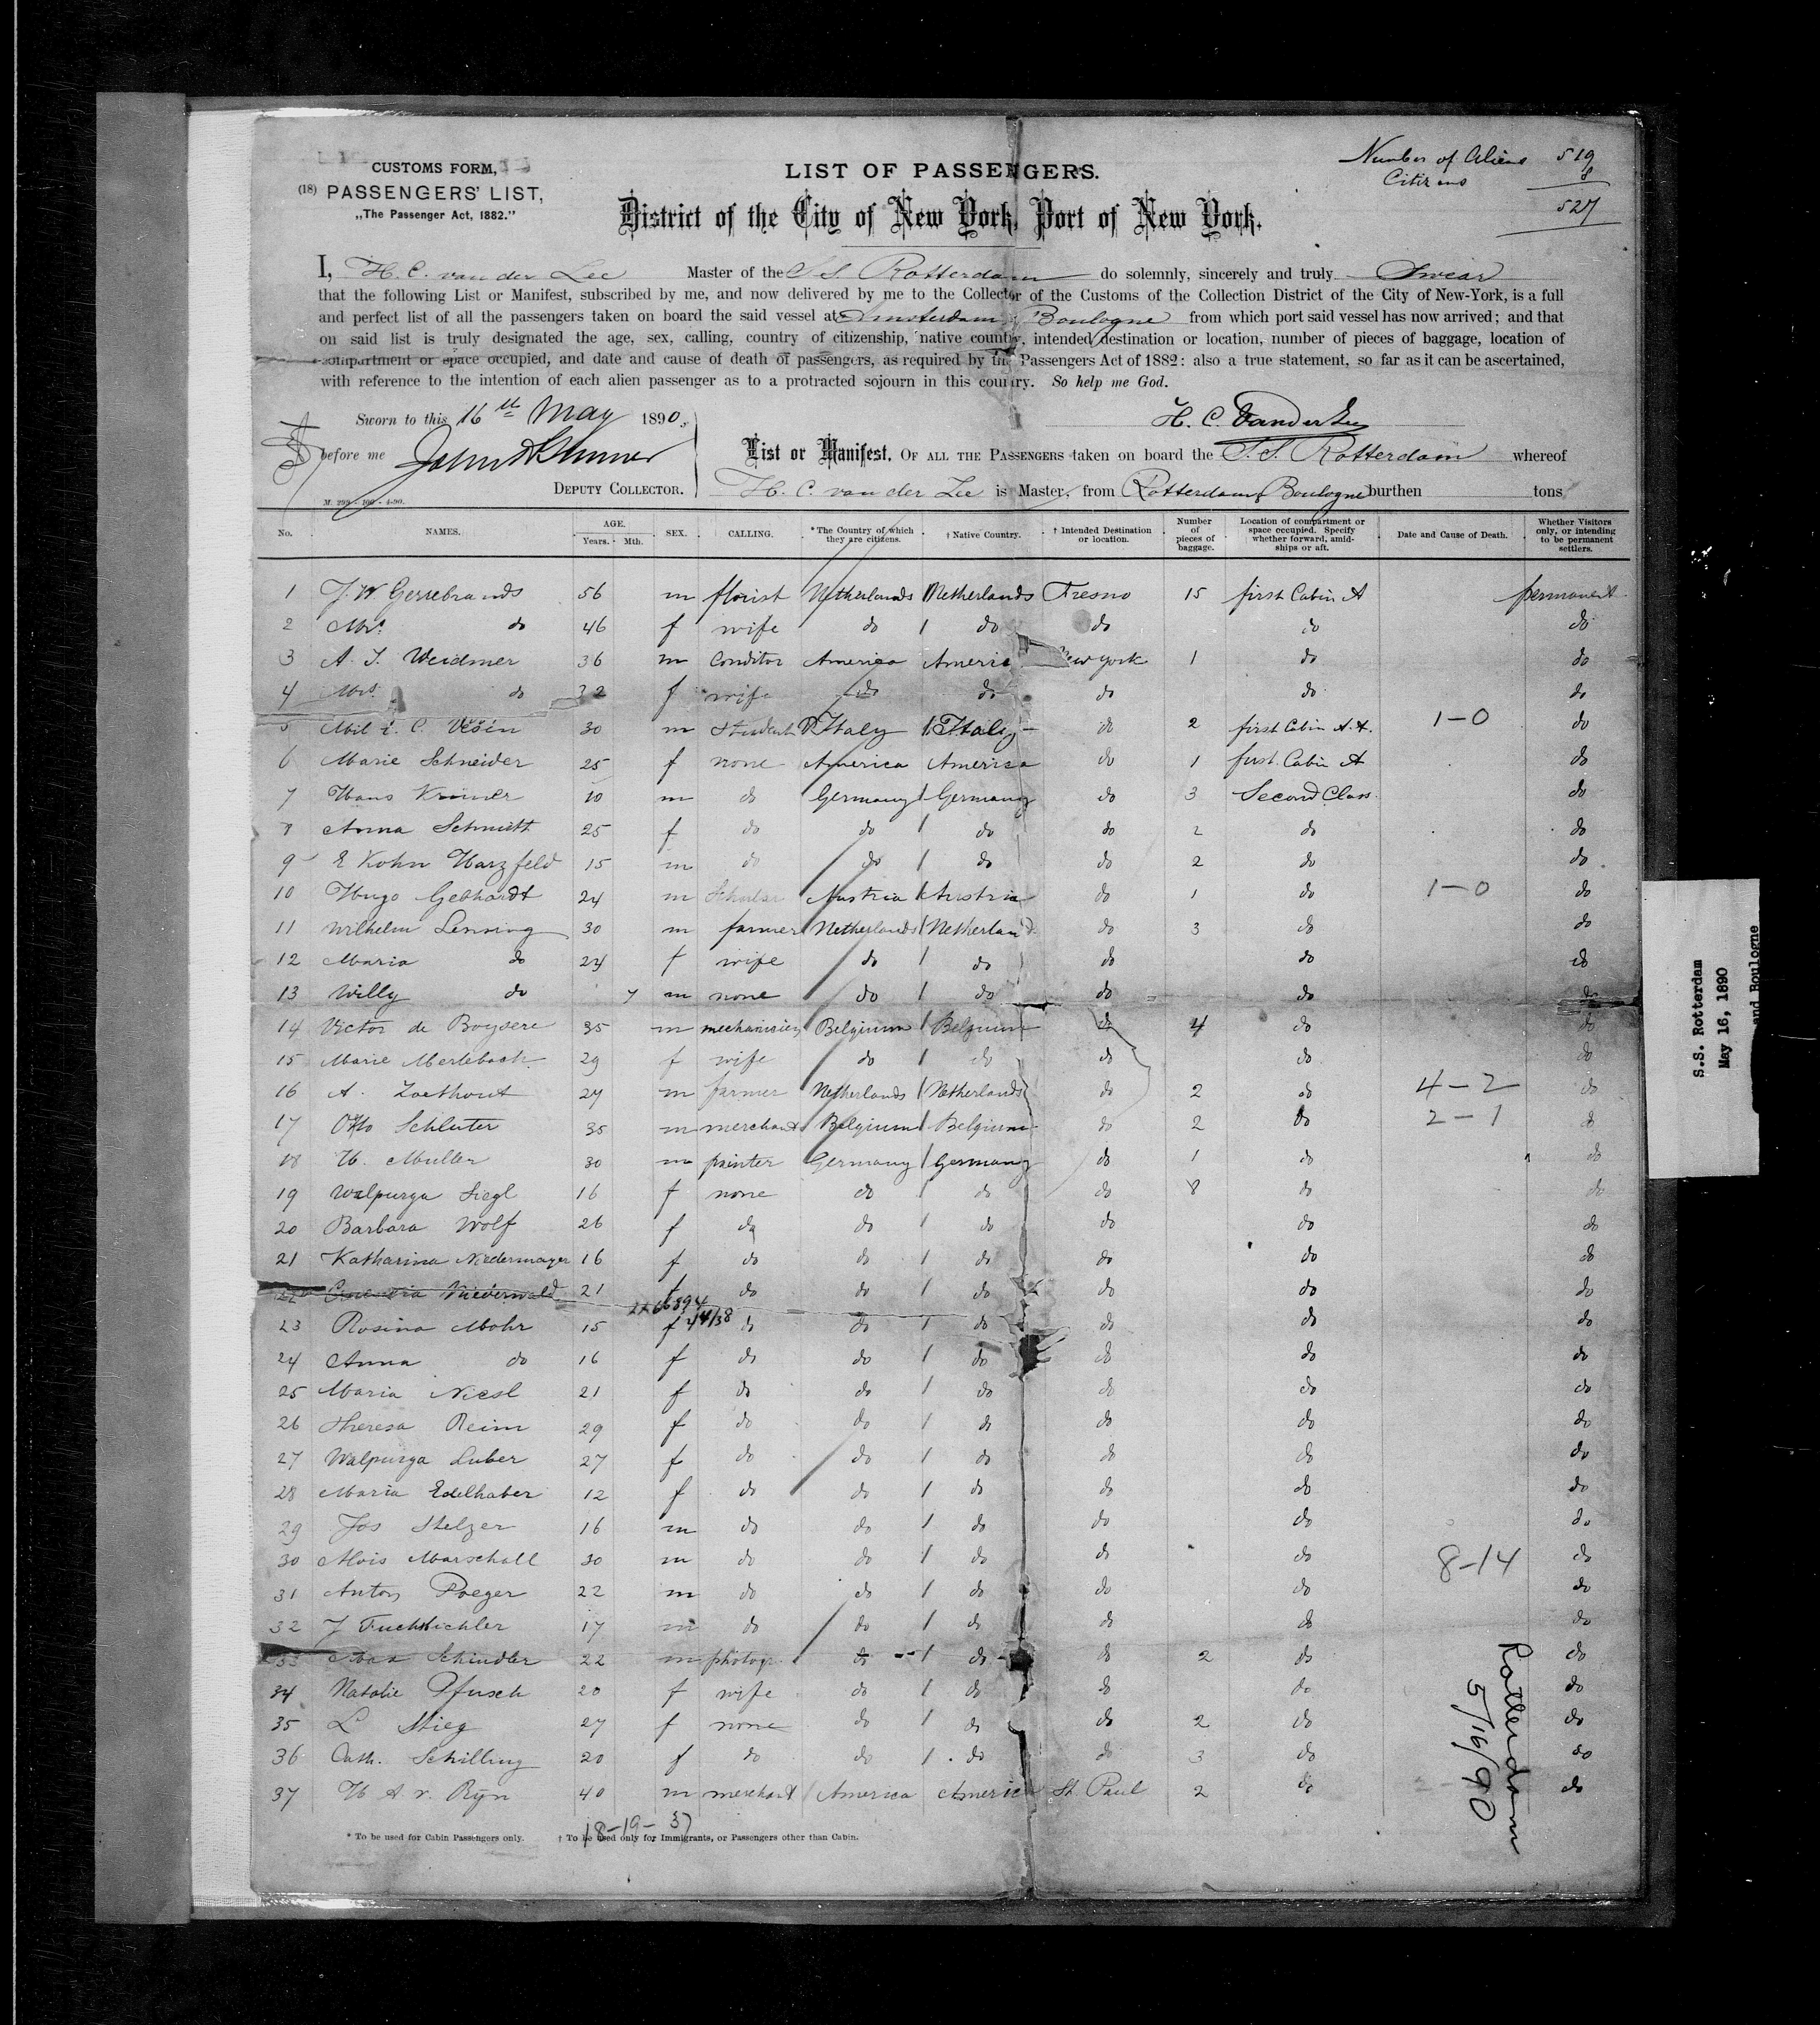 CUSTOMS FORM,
(18) PASSENGERS' LIST,
„The Passenger Act, 1882."
LIST OF PASSENGERS.
District of the City of New York, Port of New York.
Number of Aliens 519
Citizens 8
527
I, H. C. van der Lee Master of the S.S. Rotterdam do solemnly, sincerely and truly Swear
that the following List or Manifest, subscribed by me, and now delivered by me to the Collector of the Customs of the Collection District of the City of New-York, is a full
and perfect list of all the passengers taken on board the said vessel at Amsterdam & Boulogne from which port said vessel has now arrived; and that
on said list is truly designated the age, sex, calling, country of citizenship, native country, intended destination or location, number of pieces of baggage, location of
compartment or space occupied, and date and cause of death of passengers, as required by the Passengers Act of 1882: also a true statement, so far as it can be ascertained,
with reference to the intention of each alien passenger as to a protracted sojourn in this country. So help me God.
Sworn to this 16th May 1890.
H. C. Vanderlee
before me
DEPUTY COLLECTOR.
M. 299 - 100 - 4-90.
List or Manifest, OF ALL THE PASSENGERS taken on board the S.S. Rotterdam whereof
H. C. van der Lee is Master, from Rotterdam & Boulogne burthen tons
No. NAMES. AGE. Years. Mth. SEX. CALLING. * The Country of which they are citizens. † Native Country. † Intended Destination or location. Number of pieces of baggage. Location of compartment or space occupied. Specify whether forward, amidships or aft. Date and Cause of Death. Whether Visitors only, or intending to be permanent settlers.
1 J. W. Gerrebrands 56 m florist Netherlands Netherlands Fresno 15 first Cabin A permanent
2 Mrs. do 46 f wife do do do do do
3 A. J. Weidmer 36 m Conditor America Americ New york 1 do do
4 Mrs. do 32 f wife do do do do do
5 C. Vesin 30 m student Italy Italy do 2 first Cabin A.A. 1-0 do
6 Marie Schneider 25 f none America America do 1 first Cabin A do
7 Hans 10 m do Germany Germany do 3 Second Class do
8 Anna Schmitt 25 f do do do do 2 do do
9 E Kohn Harzfeld 15 m do do do do 2 do do
10 Hugo Gebhardt 24 m Scholar Austria Austria do 1 do 1-0 do
11 Wilhelm Lensing 30 m farmer Netherlands Netherland do 3 do do
12 Maria do 24 f wife do do do do do
13 Willy do 7 m none do do do do do
14 Victor de Boysere 35 m mechanicien Belgium Belgium do 4 do do
15 Marie Merlebach 29 f wife do do do do do
16 A. Zoethout 27 m farmer Netherlands Netherlands do 2 do 4-2 do
17 Otto Schluter 35 m merchant Belgium Belgium do 2 do 2-1 do
18 H. Muller 30 m painter Germany Germany do 1 do do
19 Walpurga Siegl 16 f none do do do 8 do do
20 Barbara Wolf 26 f do do do do do do
21 Katharina Niedermayer 16 f do do do do do do
22 Niederwald 21 f do do do do do do
23 Rosina Mohr 15 f do do do do do do
24 Anna do 16 f do do do do do do
25 Maria Niesl 21 f do do do do do do
26 Theresa Reim 29 f do do do do do do
27 Walpurga Luber 27 f do do do do do do
28 Maria Edelhaber 12 f do do do do do do
29 Jos Stelzer 16 m do do do do do do
30 Alois Marschall 30 m do do do do do 8-14 do
31 Anton Poeger 22 m do do do do do do
32 J Fuchsichler 17 m do do do do do do
33 Max Schindler 22 m photogr. do do do 2 do do
34 Natalie Pfusch 20 f wife do do do do do
35 L Stieg 27 f none do do do 2 do do
36 Cath. Schilling 20 f do do do do 3 do do
37 H A v. Ryn 40 m merchant America America St. Paul 2 do do
18-19- 37
* To be used for Cabin Passengers only. † To be used only for Immigrants, or Passengers other than Cabin.
Rotterdam
5/16/90
S.S. Rotterdam
May 16, 1890
and Boulogne